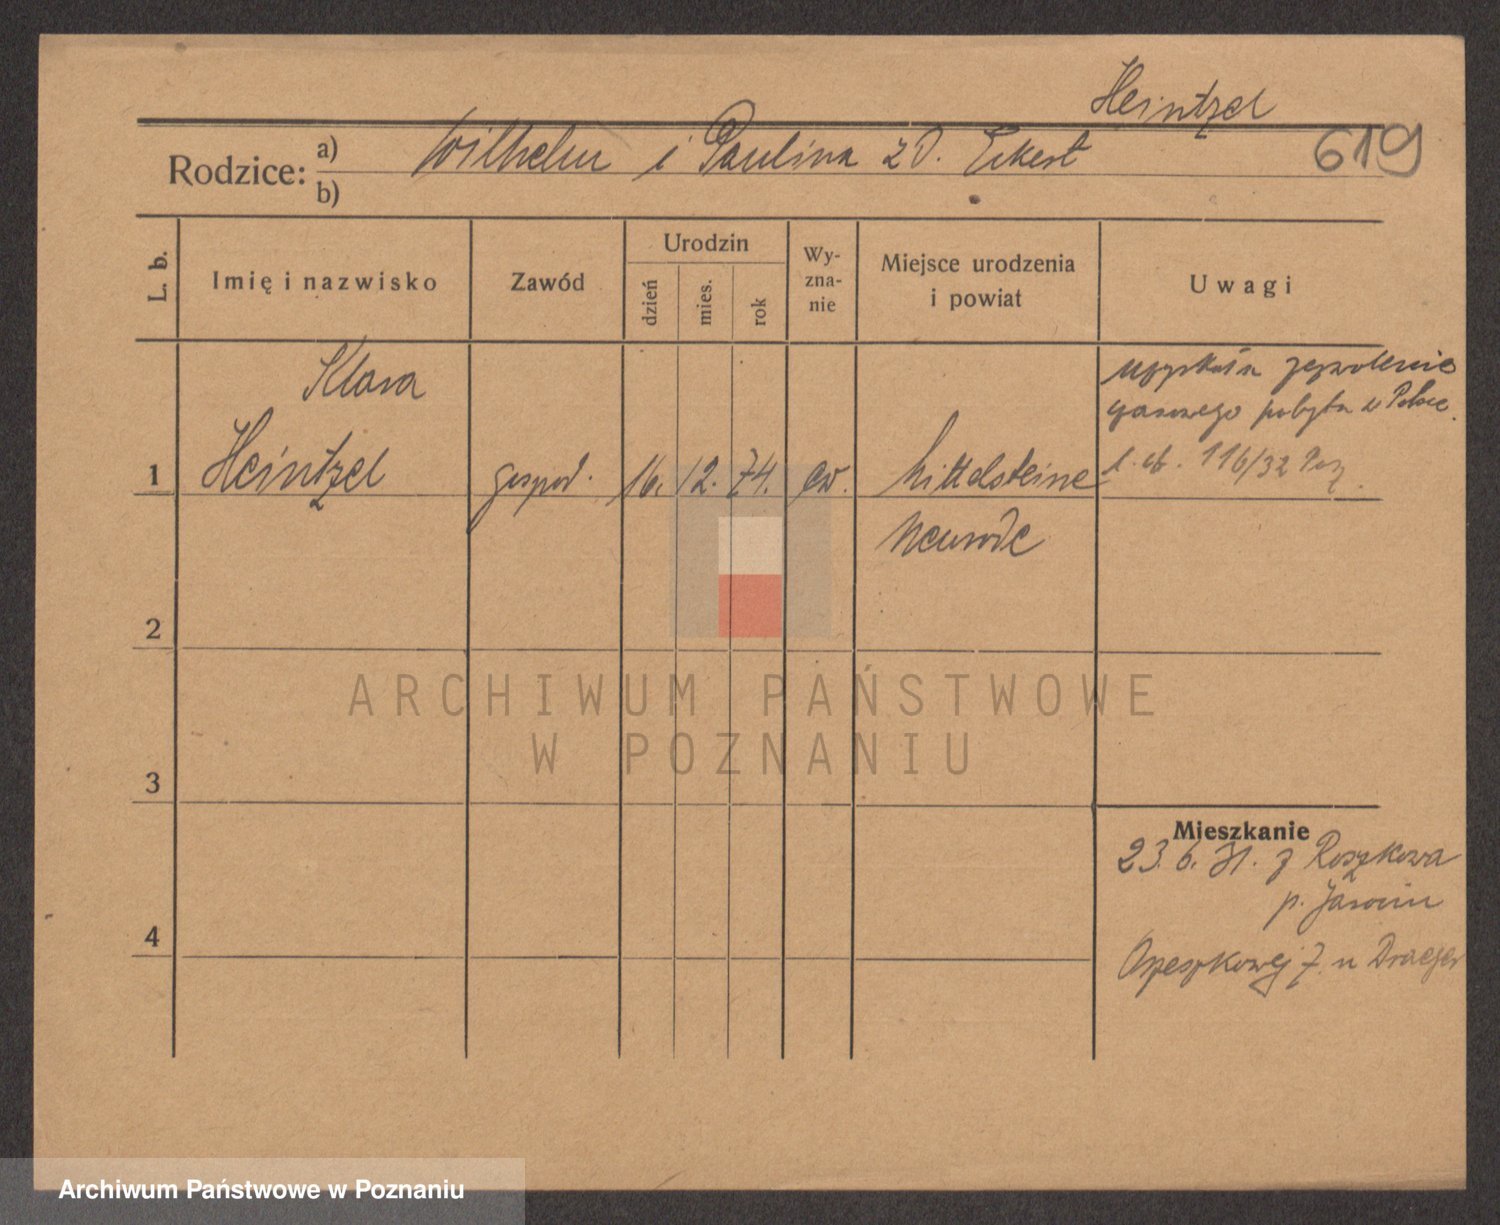 Heintzel
619
Rodzice: a) Wilhelm i Paulina z D. Eckert
b)
L. b.
Imię i nazwisko
Zawód
Urodzin
dzień
mies.
rok
Wy-
zna-
nie
Miejsce urodzenia
i powiat
Uwagi
Klara
1 Heintzel gospod. 16. 12. 74. ew. Mittelsteine
Neurode
uzyskała zezwolenie
czasowego pobytu w Polsce.
116/32
2
3
4
Mieszkanie
23. 6. 31. z Roszkowa
p. Jarocin
Orzeszkowej 7. u Draeger
ARCHIWUM PAŃSTWOWE
W POZNANIU
Archiwum Państwowe w Poznaniu